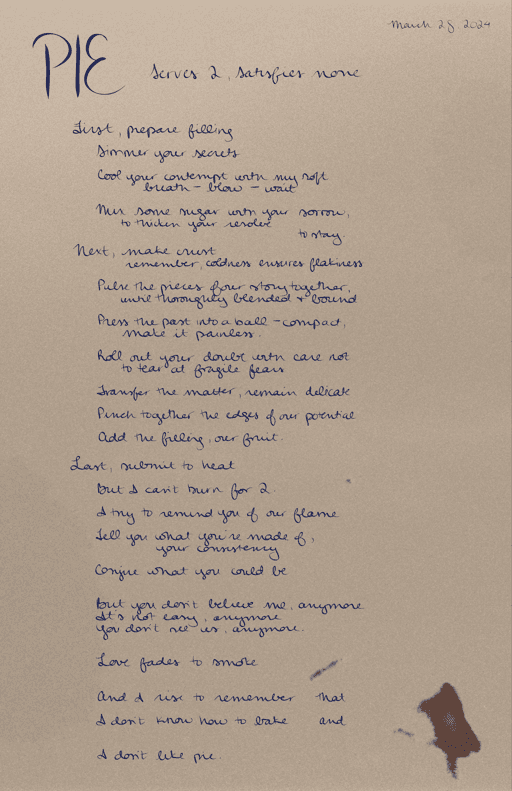 March 28 2024
PIE
Serves 2, satisfies none
First, prepare filling
Simmer your secrets
Cool your contempt with my soft
breath – blow – wait
Mix some sugar with your sorrow,
to thicken your resolve
to stay.
Next, make crust
remember, coldness ensures flakiness
Pulse the pieces of our story together,
until thoroughly blended + bound
Press the past into a ball – compact,
make it painless.
Roll out your doubt with care not
to tear at fragile fears
Transfer the matter, remain delicate
Pinch together the edges of our potential
Add the filling, our fruit.
Last, submit to heat
But I can't burn for 2.
I try to remind you of our flame
Tell you what you're made of,
your consistency
Conjure what you could be
But you don't believe me, anymore
It's not easy, anymore
You don't see us, anymore.
Love fades to smoke
And I rise to remember that
I don't know how to bake and
I don't like pie.